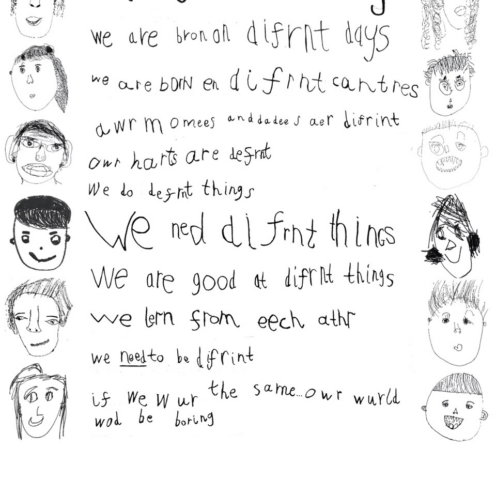 we are bron on difrnt days
we are boIN en difrnt cantres
awr momees and dadees aor difrint
owr harts are defrnt
We do defrnt things
We ned difrnt things
We are good at difrnt things
we lern from eech athr
we need to be difrint
if we wur the same... owr wurld
wod be boring